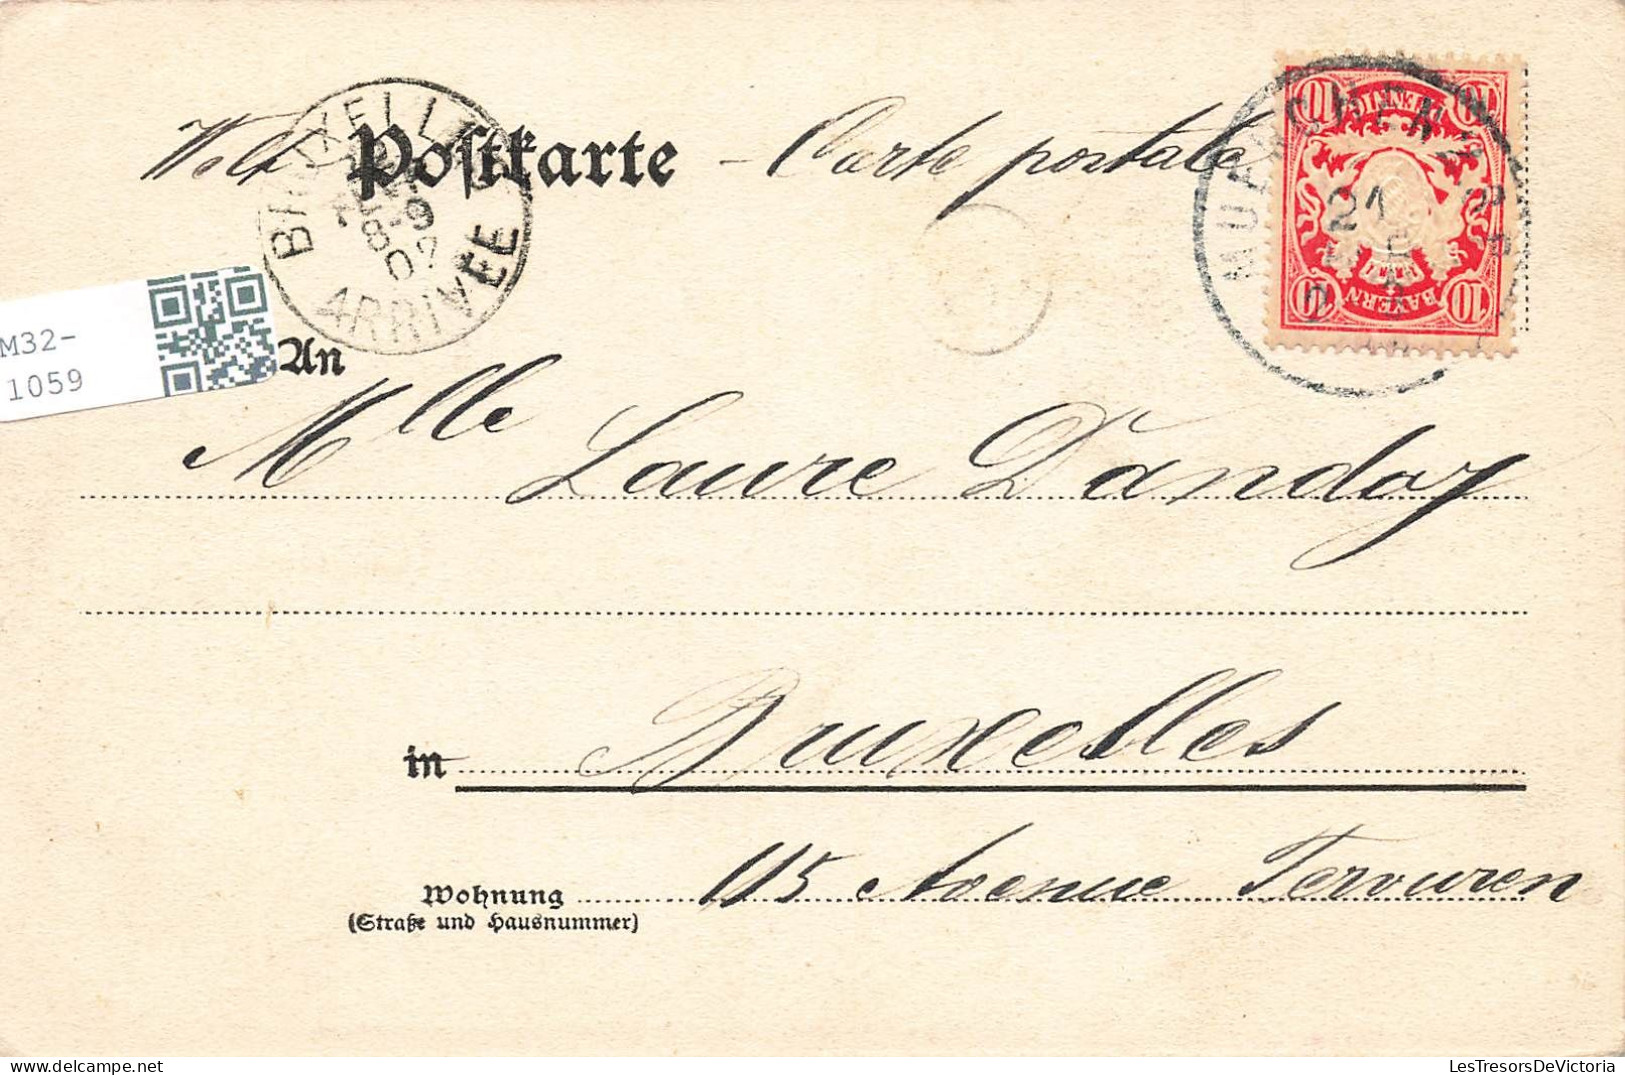 Welt Postkarte – Carte postale
BRUXELLES
8-9
02
ARRIVEE
MUENCHEN
21
10 PFENNIG 10
10 BAYERN 10
M32-
1059
An
Mlle Laure Dandoy
in Bruxelles
Wohnung 115 Avenue Tervuren
(Straße und Hausnummer)
LesTresorsDeVictoria